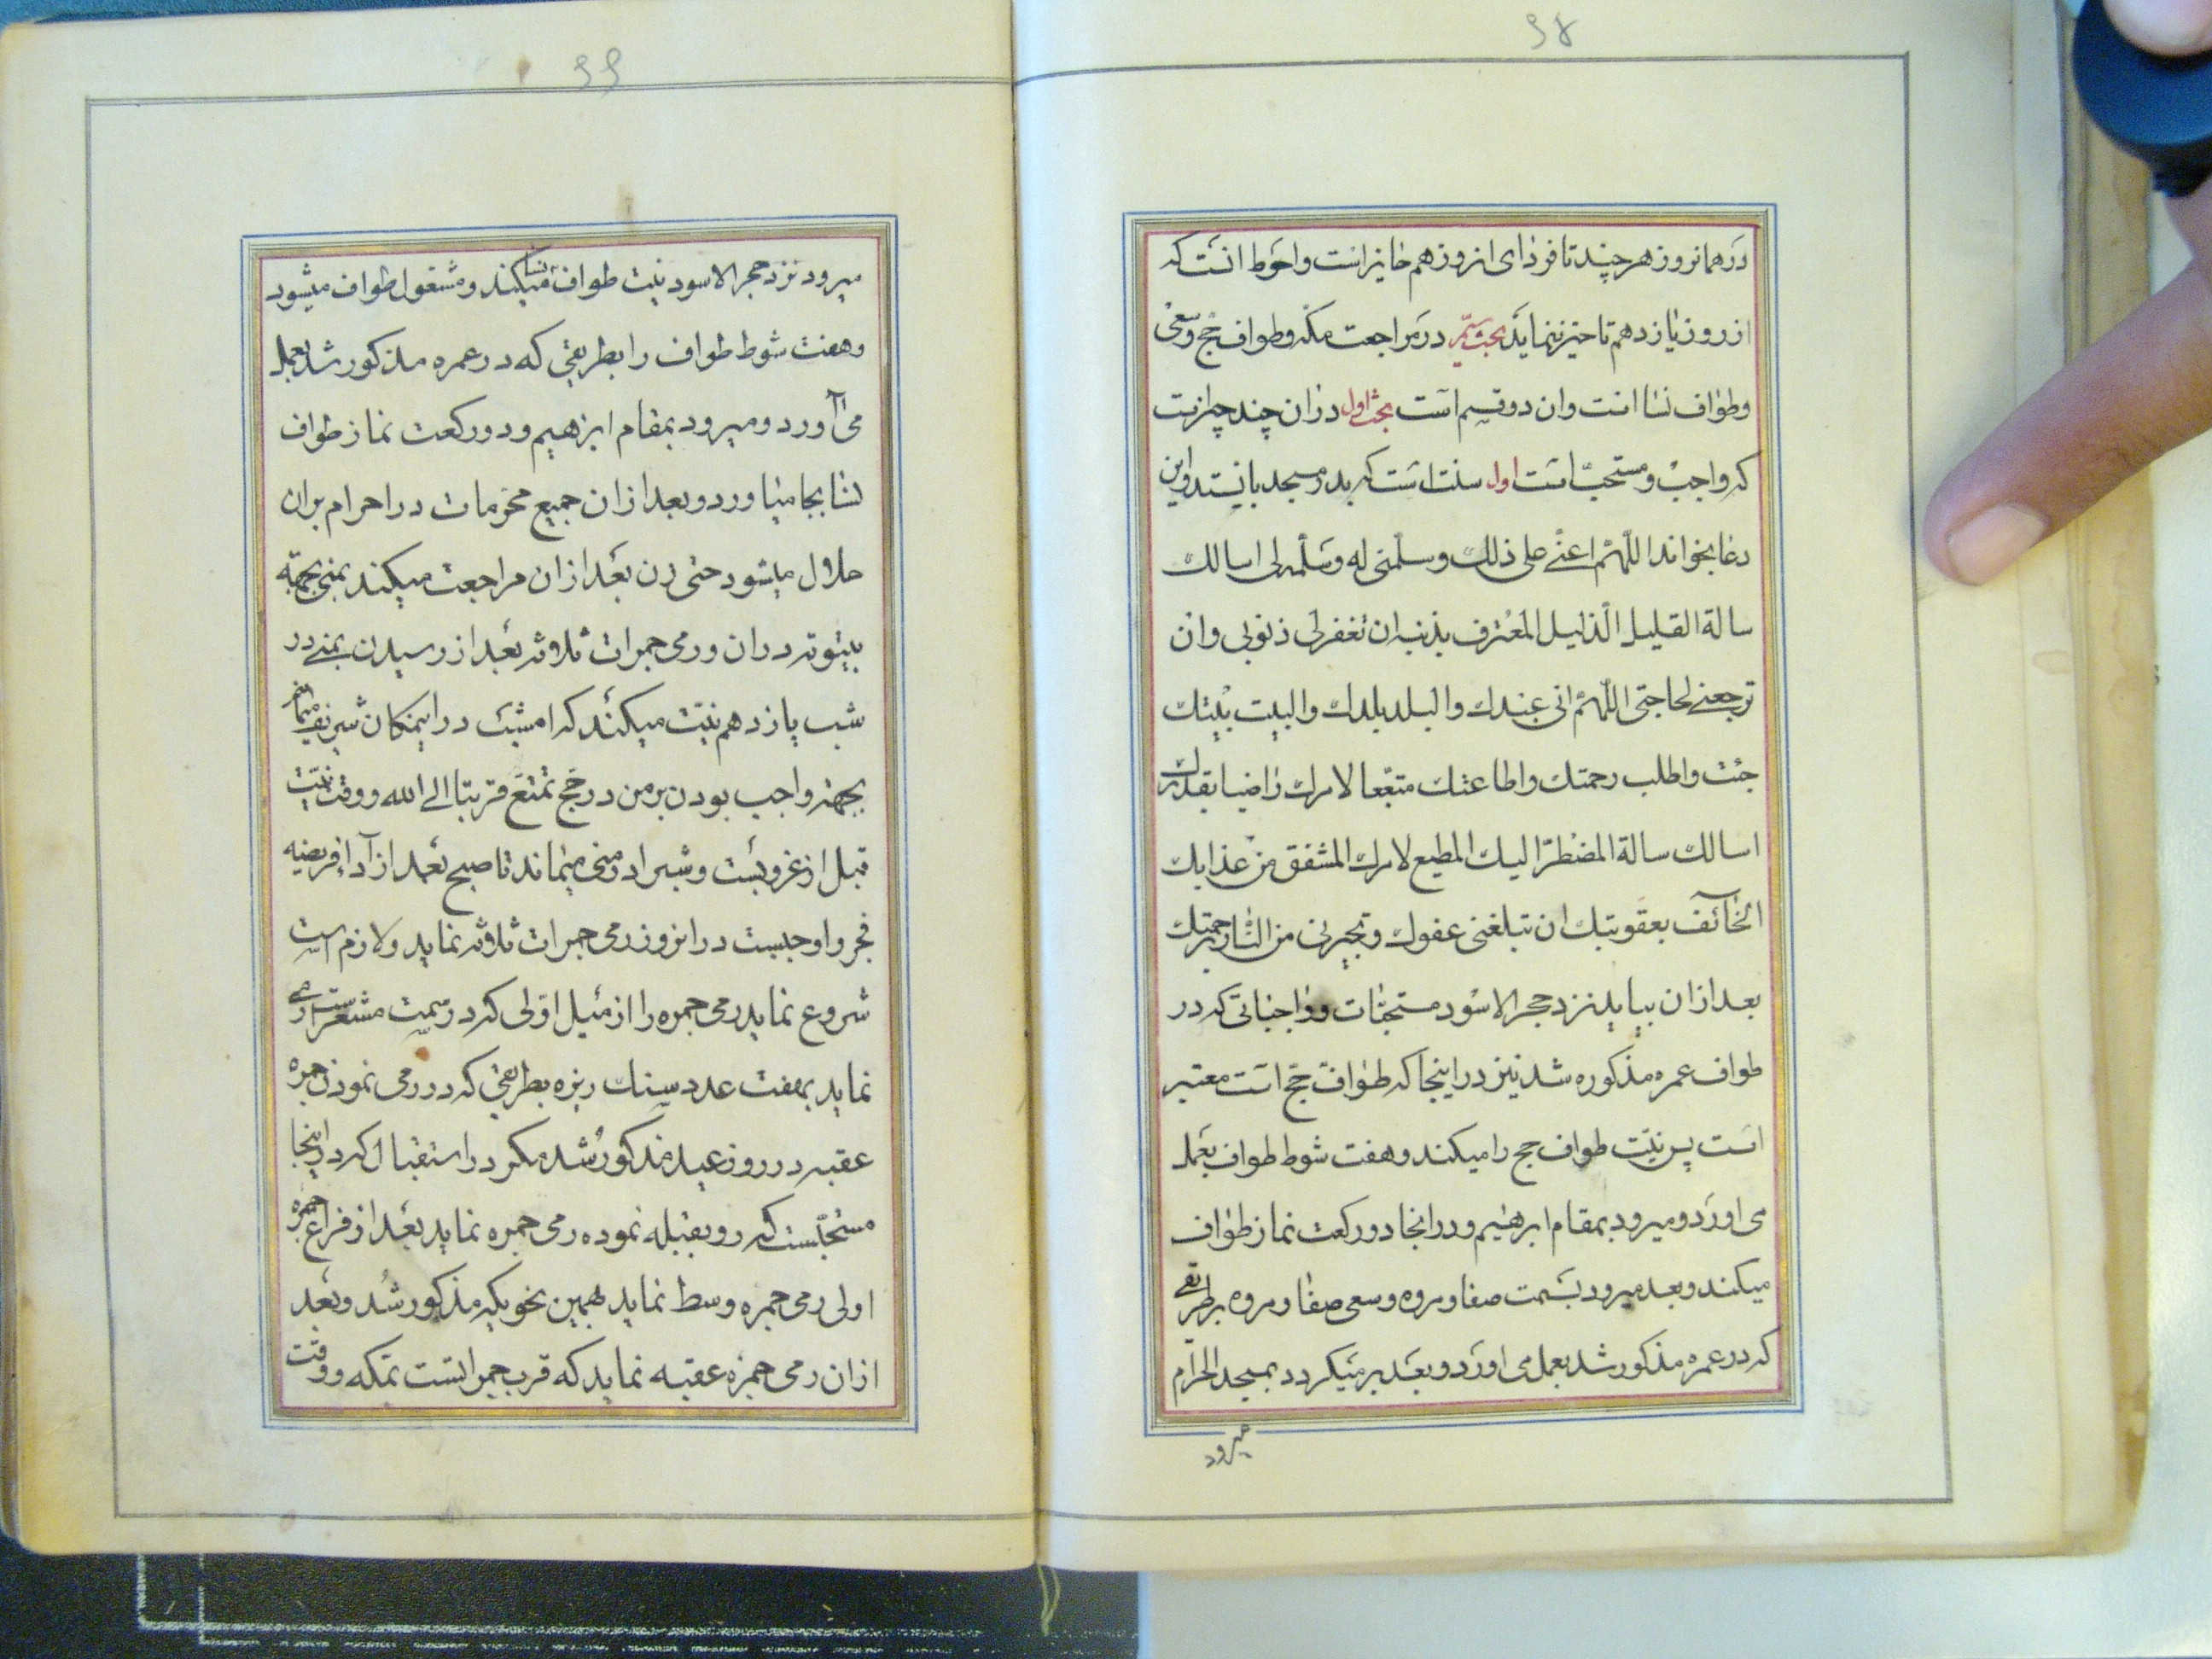 ۶۵
در همانروز هر چند تا فردای انروز هم جایز است و احوط انست که
از روز یازدهم تاخیر ننماید بحث سیّم در مراجعت مکه و طواف حج و سعی
و طواف نسا است وان دو قسم است بحث اول دران چند چیزیست
که واجب و مستحب است اول سنت است که بدر مسجد بایستد و این
دعا بخواند اللّهم اعنّی علی ذلك وسلّمنی له وسلّمه لی اسالك
سالة القلیل الذلیل المعترف بذنبه ان تغفر لی ذنوبی وان
ترجعنی لحاجتی اللّهم انی عبدك والبلد بلدك والبیت بیتك
جئت واطلب رحمتك واطاعتك متبّعا لامرك راضیا بقدرك
اسالك سالة المضطرّ الیك المطیع لامرك المشفق من عذابك
الخائف بعقوبتك ان تبلغنی عفوك وتجیرنی من النّار برحمتك
بعد ازان بیاید نزد حجر الاسود مستحبّات و واجباتی که در
طواف عمره مذکوره شد نیز در اینجا که طواف حجّ است معتبر
است پس نیّت طواف حج را میکند و هفت شوط طواف بعمل
می اورد و میرود بمقام ابرهیم و در انجا دو رکعت نماز طواف
میکند و بعد میرود بسمت صفا و مروه و سعی صفا و مروه بر طریقی
که در عمره مذکور شد بعمل می اورد و بعد بر میکردد بمسجد الحرام
میرود
۶۶
میرود نزد حجر الاسود نیت طواف نسا میکند و مشغول طواف میشود
و هفت شوط طواف را بطریقی که در عمره مذکور شد بعمل
می آورد و میرود بمقام ابرهیم و دو رکعت نماز طواف
نسا بجا میاورد و بعد ازان جمیع محرّمات در احرام بران
حلال میشود حتی زن بعد ازان مراجعت میکند بمنی بجهة
بیتوته دران و رمی جمرات ثلاثه بعد از رسیدن بمنی در
شب یازدهم نیّت میکند که امشب در اینمکان شریف میمانم
بجهة واجب بودن بر من در حج تمتّع قربتا الی الله و وقت نیّت
قبل از غروبست و شب را در منی میماند تا صبح بعد از آدا فریضه
فجر و اوجبست در انروز رمی جمرات ثلاثه نماید و لازم است
شروع نماید رمی جمره را از میل اوّلی که در سمت مشعر است رمی
نماید بهفت عدد سنك ریزه بطریقی که در رمی نمودن جمره
عقبه در روز عید مذکور شد مکر در استقبال که در اینجا
مستحبّست که رو بقبله نموده رمی جمره نماید بعد از فراغ جمره
اولی رمی جمره وسط نماید بهمین نحویکه مذکور شد و بعد
ازان رمی جمره عقبه نماید که قرب جمراتست بمکه و وقت